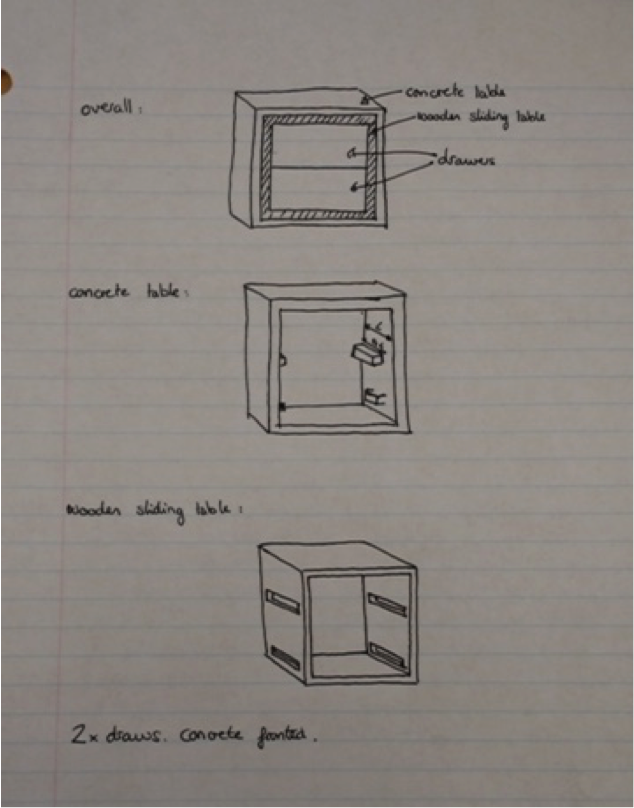 overall :
concrete table
wooden sliding table
drawers
concrete table :
wooden sliding table :
2x draws. Concrete fronted.